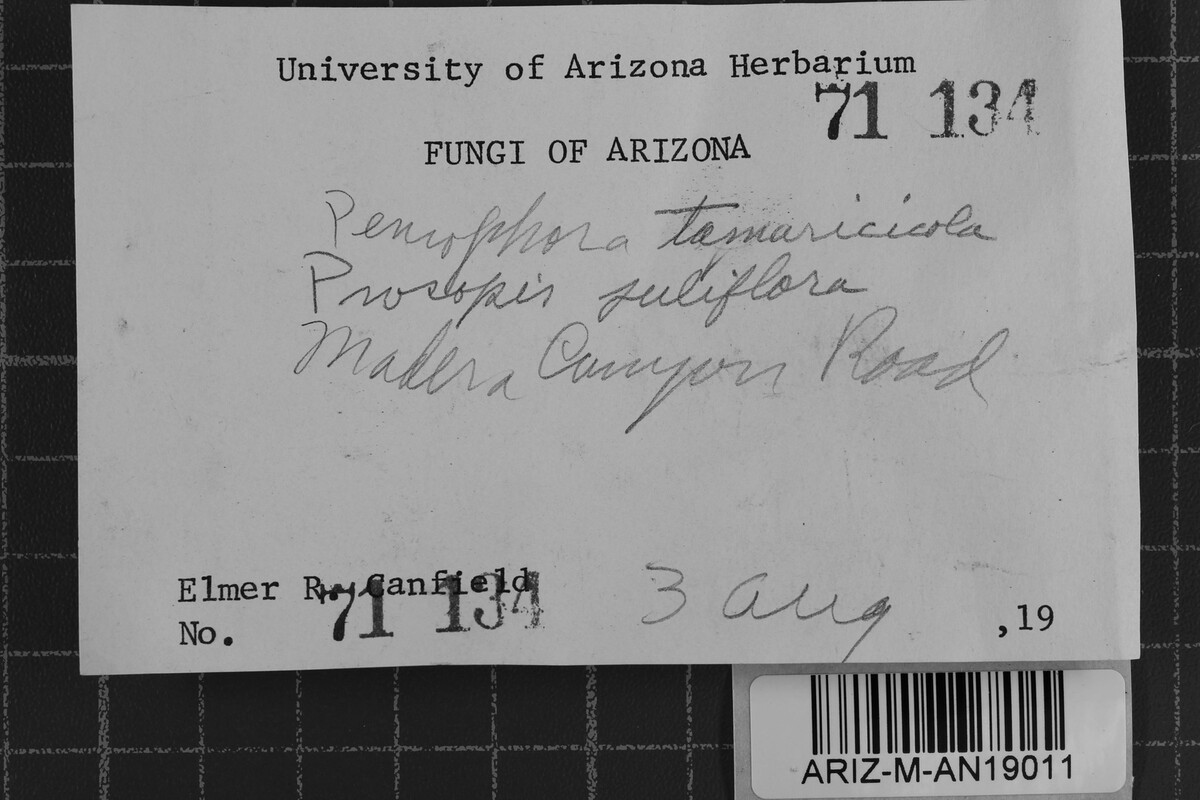 University of Arizona Herbarium
71 134
FUNGI OF ARIZONA
Peniophora tamaricicola
Prosopis juliflora
Madera Canyon Road
Elmer R. Canfield
No. 71 134
3 Aug ,19
ARIZ-M-AN19011